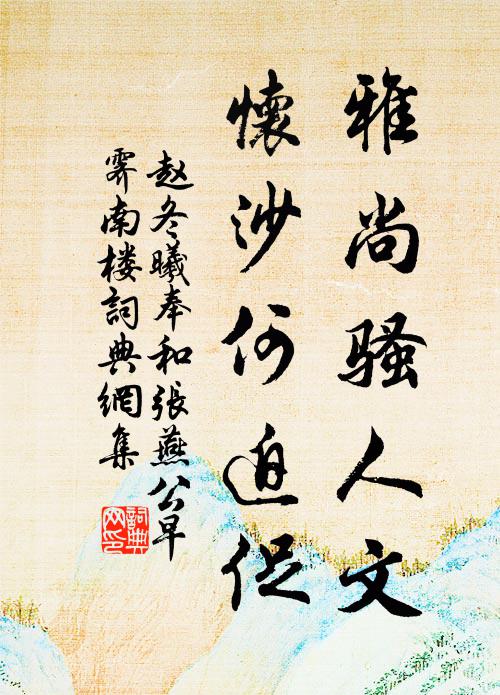 雅尚骚人文
懷沙何迫促
赵冬曦奉和张燕公早
霁南楼詞典網集
詞典网印